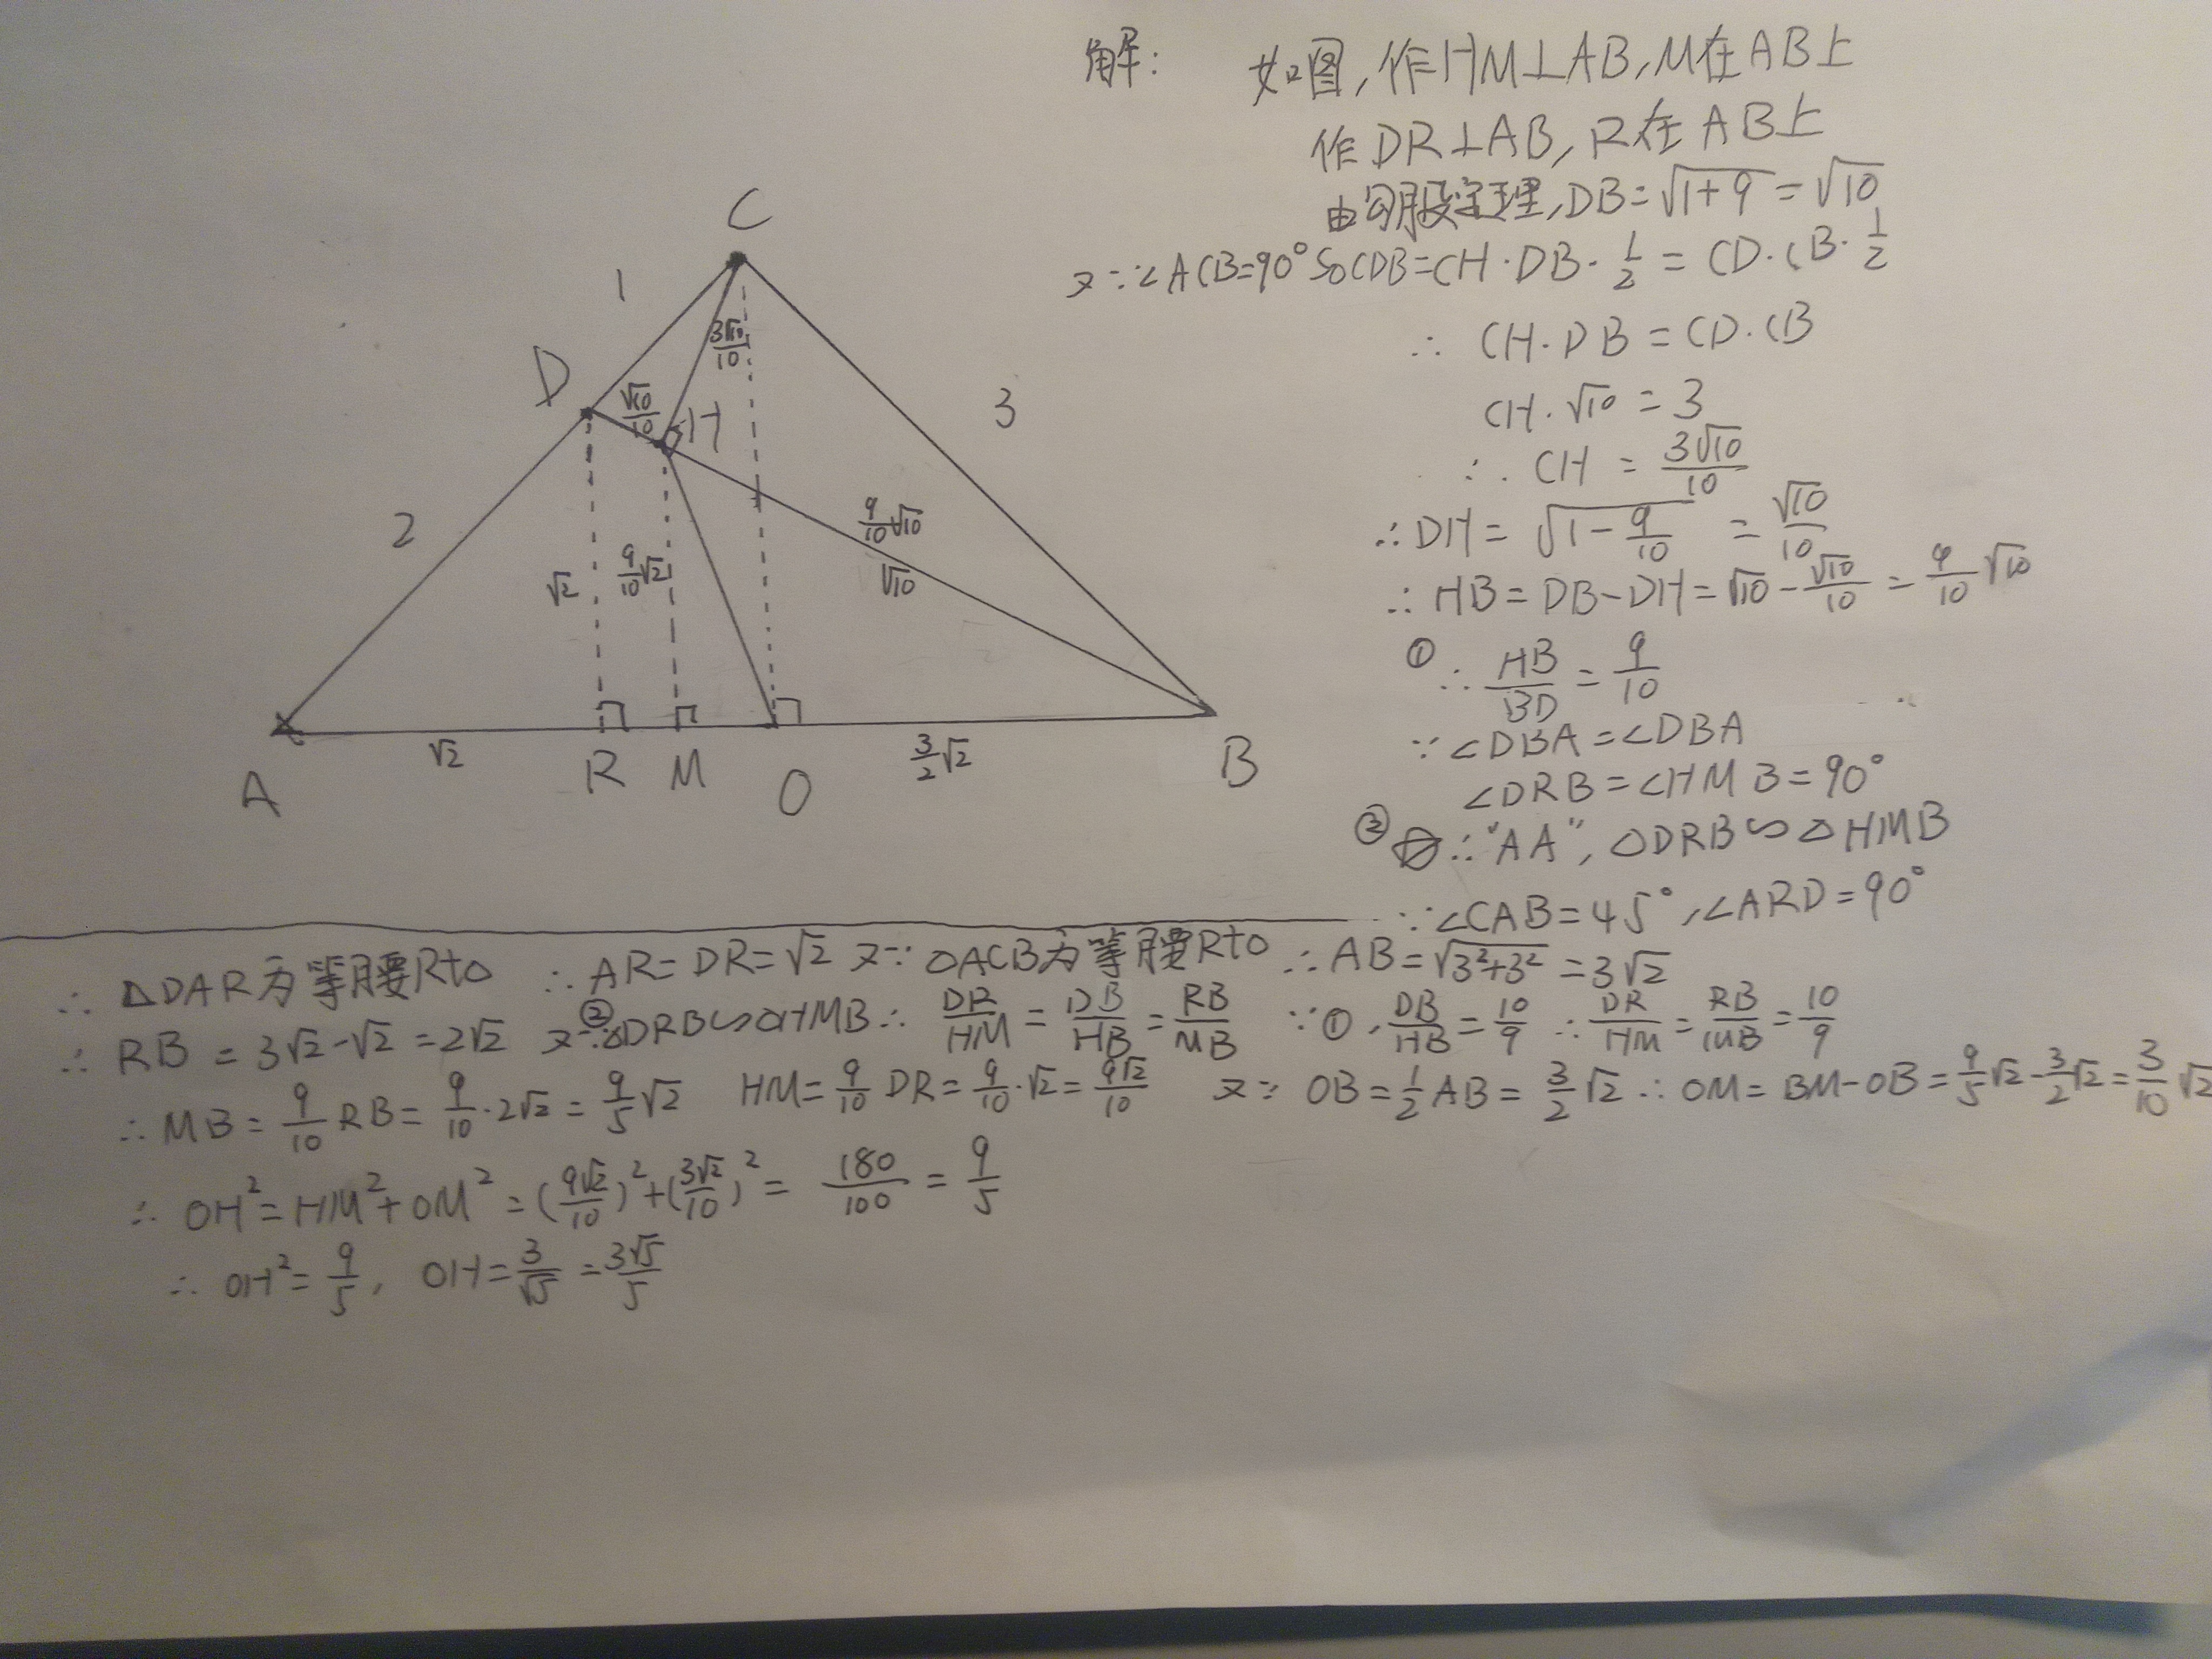 解: 如图,作HM⊥AB,M在AB上
作DR⊥AB,R在AB上
由勾股定理,DB=√(1+9)=√10
又∵∠ACB=90° S△CDB=CH·DB·1/2=CD·CB·1/2
∴CH·DB=CD·CB
CH·√10=3
∴CH=3√10/10
∴DH=√(1-9/10)=√10/10
∴HB=DB-DH=√10-√10/10=9/10√10
①∴HB/BD=9/10
∵∠DBA=∠DBA
∠DRB=∠HMB=90°
②∴"AA",△DRB∽△HMB
∵∠CAB=45°,∠ARD=90°
C
1
3√10/10
D
√10/10
H
3
2
9/10√10
√10
√2
9/10√2
√2
3/2√2
A
R
M
O
B
∴△DAR为等腰Rt△ ∴AR=DR=√2 又∵△ACB为等腰Rt△ ∴AB=√(3²+3²)=3√2
∴RB=3√2-√2=2√2 又∵②△DRB∽△HMB∴DR/HM=DB/HB=RB/MB ∵①,DB/HB=10/9 ∴DR/HM=RB/MB=10/9
∴MB=9/10RB=9/10·2√2=9/5√2 HM=9/10DR=9/10·√2=9√2/10 又∵OB=1/2AB=3/2√2∴OM=BM-OB=9/5√2-3/2√2=3/10√2
∴OH²=HM²+OM²=(9√2/10)²+(3√2/10)²=180/100=9/5
∴OH²=9/5, OH=3/√5=3√5/5